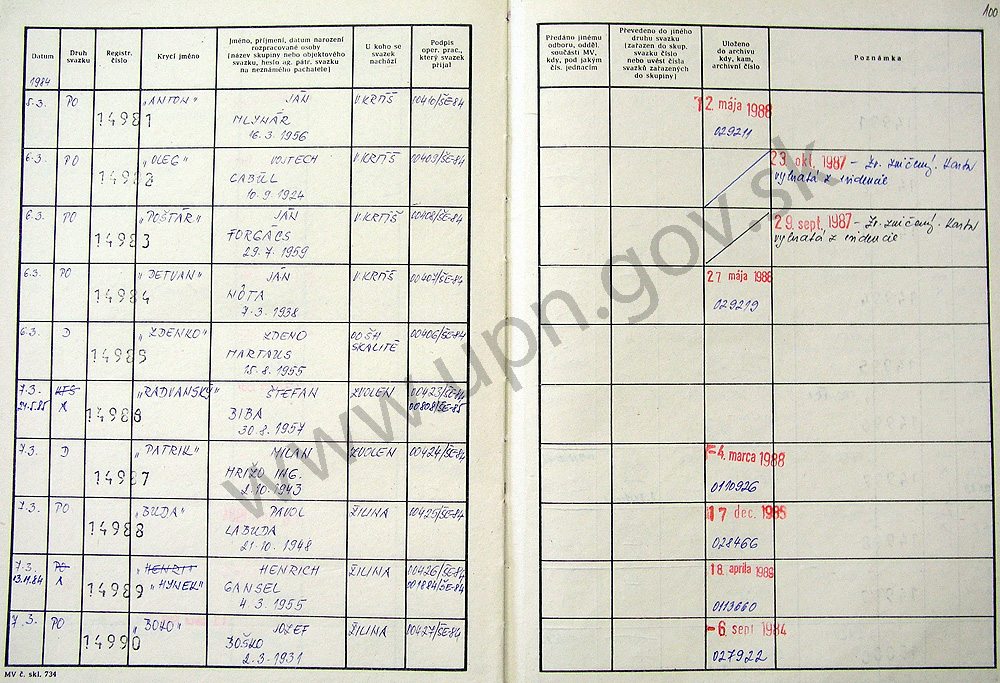 100
Datum
Druh svazku
Registr. číslo
Krycí jméno
Jméno, příjmení, datum narození
rozpracované osoby
(název skupiny nebo objektového
svazku, heslo ag. pátr. svazku
na neznámého pachatele)
U koho se
svazek
nachází
Podpis
oper. prac.,
který svazek
přijal
Předáno jinému
odboru, odděl.
součásti MV,
kdy, pod jakým
čís. jednacím
Převedeno do jiného
druhu svazku
(zařazen do skup.
svazku číslo
nebo uvést čísla
svazků zařazených
do skupiny)
Uloženo
do archivu
kdy, kam,
archivní číslo
Poznámka
1984
5.3. PO 14981 „ANTON" JÁN V.KRTÍŠ 00410/ŠE-84
MLYNÁR
16.3.1956
12. mája 1988
029211
6.3. PO 14982 „OLEG" VOJTECH V.KRTÍŠ 00409/ŠE-84
CABÚLL
10.9.1924
23. okt. 1987 – Zv. zničený. Karta
vyňatá z evidencie
6.3. PO 14983 „POŠTÁR" JÁN V.KRTÍŠ 00408/ŠE-84
FORGÁCS
29.7.1959
29. sept. 1987 – Zv. zničený. Karta
vyňatá z evidencie
6.3. PO 14984 „DETVAN" JÁN V.KRTÍŠ 00407/ŠE-84
NÔTA
7.3.1938
27 mája 1988
029219
6.3. D 14985 „ZDENKO" ZDENO OO ŠH 00406/ŠE-84
MARTAUS SKALITÉ
15.8.1955
7.3. KTS 14986 „RADVANSKÝ" ŠTEFAN ZVOLEN 00423/ŠE-84
21.5.85 A BIBA 00808/ŠE-85
30.8.1957
7.3. D 14987 „PATRIK" MILAN ZVOLEN 00424/ŠE-84
HRIŽO ING.
2.10.1943
-4. marca 1988
0110926
7.3. PO 14988 „BUDA" PAVOL ŽILINA 00425/ŠE-84
LABUDA
21.10.1948
17 dec. 1985
028466
7.3. PO 14989 „HENRIT" HENRICH ŽILINA 00426/ŠE-84
13.11.84 A „HYNEK" GANSEL 001884/ŠE-84
4.3.1955
18. apríla 1989
0113660
7.3. PO 14990 „BOŽO" JOZEF ŽILINA 00427/ŠE-84
BOŠKO
2.3.1931
-6. sept 1984
027922
MV č. skl. 734
www.upn.gov.sk